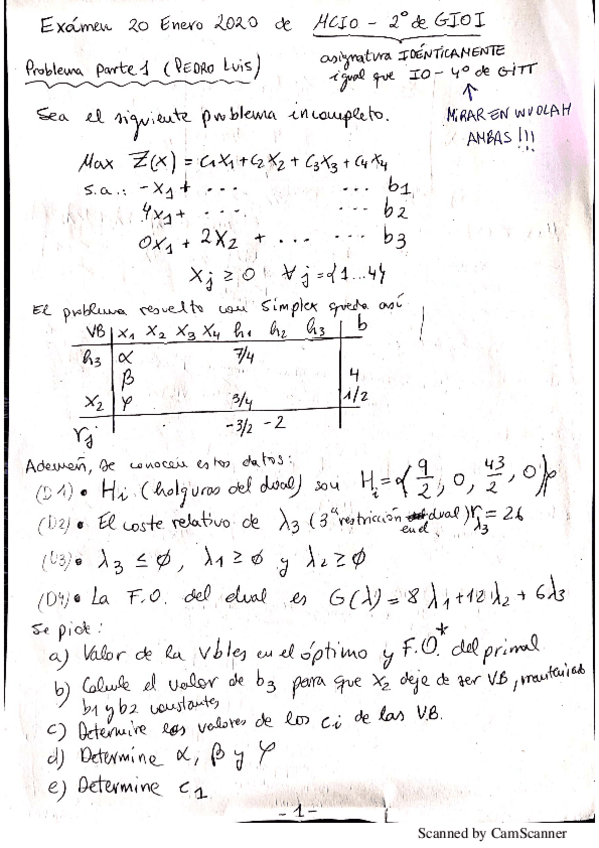 Exámen 20 Enero 2020 de MCIO - 2º de GIOI
Problema Parte 1 (PEDRO LUIS)
asignatura IDÉNTICAMENTE
igual que IO - 4º de GITT
MIRAR EN WUOLAH
AMBAS!!!
Sea el siguiente problema incompleto.
Max Z(x) = C1X1 + C2X2 + C3X3 + C4X4
s.a.: -X1 + ... ... b1
4X1 + ... ... b2
0X1 + 2X2 + ... ... b3
Xj ≥ 0 ∀j = {1...4}
El problema resuelto con Simplex queda así
VB X1 X2 X3 X4 h1 h2 h3 b
h3 α 7/4
β 4
X2 φ 3/4 1/2
rj -3/2 -2
Además, se conocen estos datos:
(D1) • Hi (holguras del dual) son Hi = {9/2, 0, 43/2, 0}
(D2) • El coste relativo de λ3 (3ª restricción en el dual) rλ3 = 26
(D3) • λ3 ≤ ∅, λ1 ≥ ∅ y λ2 ≥ ∅
(D4) • La F.O. del dual es G(λ) = 8λ1 + 12λ2 + 6λ3
Se pide:
a) Valor de la vbles en el óptimo y F.O.* del primal
b) Calcule el valor de b3 para que X2 deje de ser VB, manteniendo
b1 y b2 constantes
c) Determine los valores de los ci de las V.B.
d) Determine α, β y φ
e) Determine c1
-1-
Scanned by CamScanner